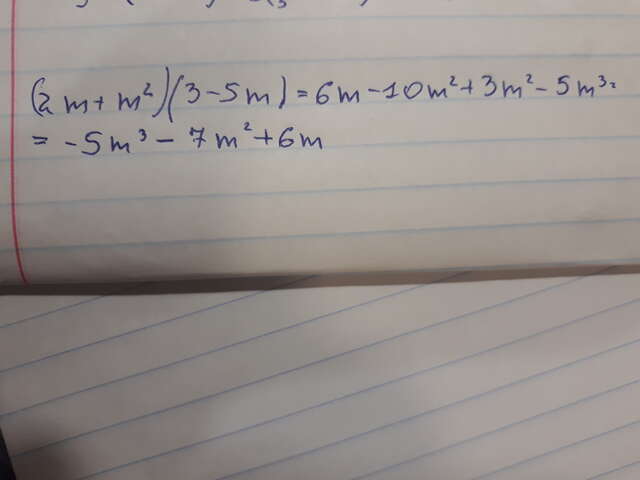 (2m+m²)(3-5m)=6m-10m²+3m²-5m³=
=-5m³-7m²+6m